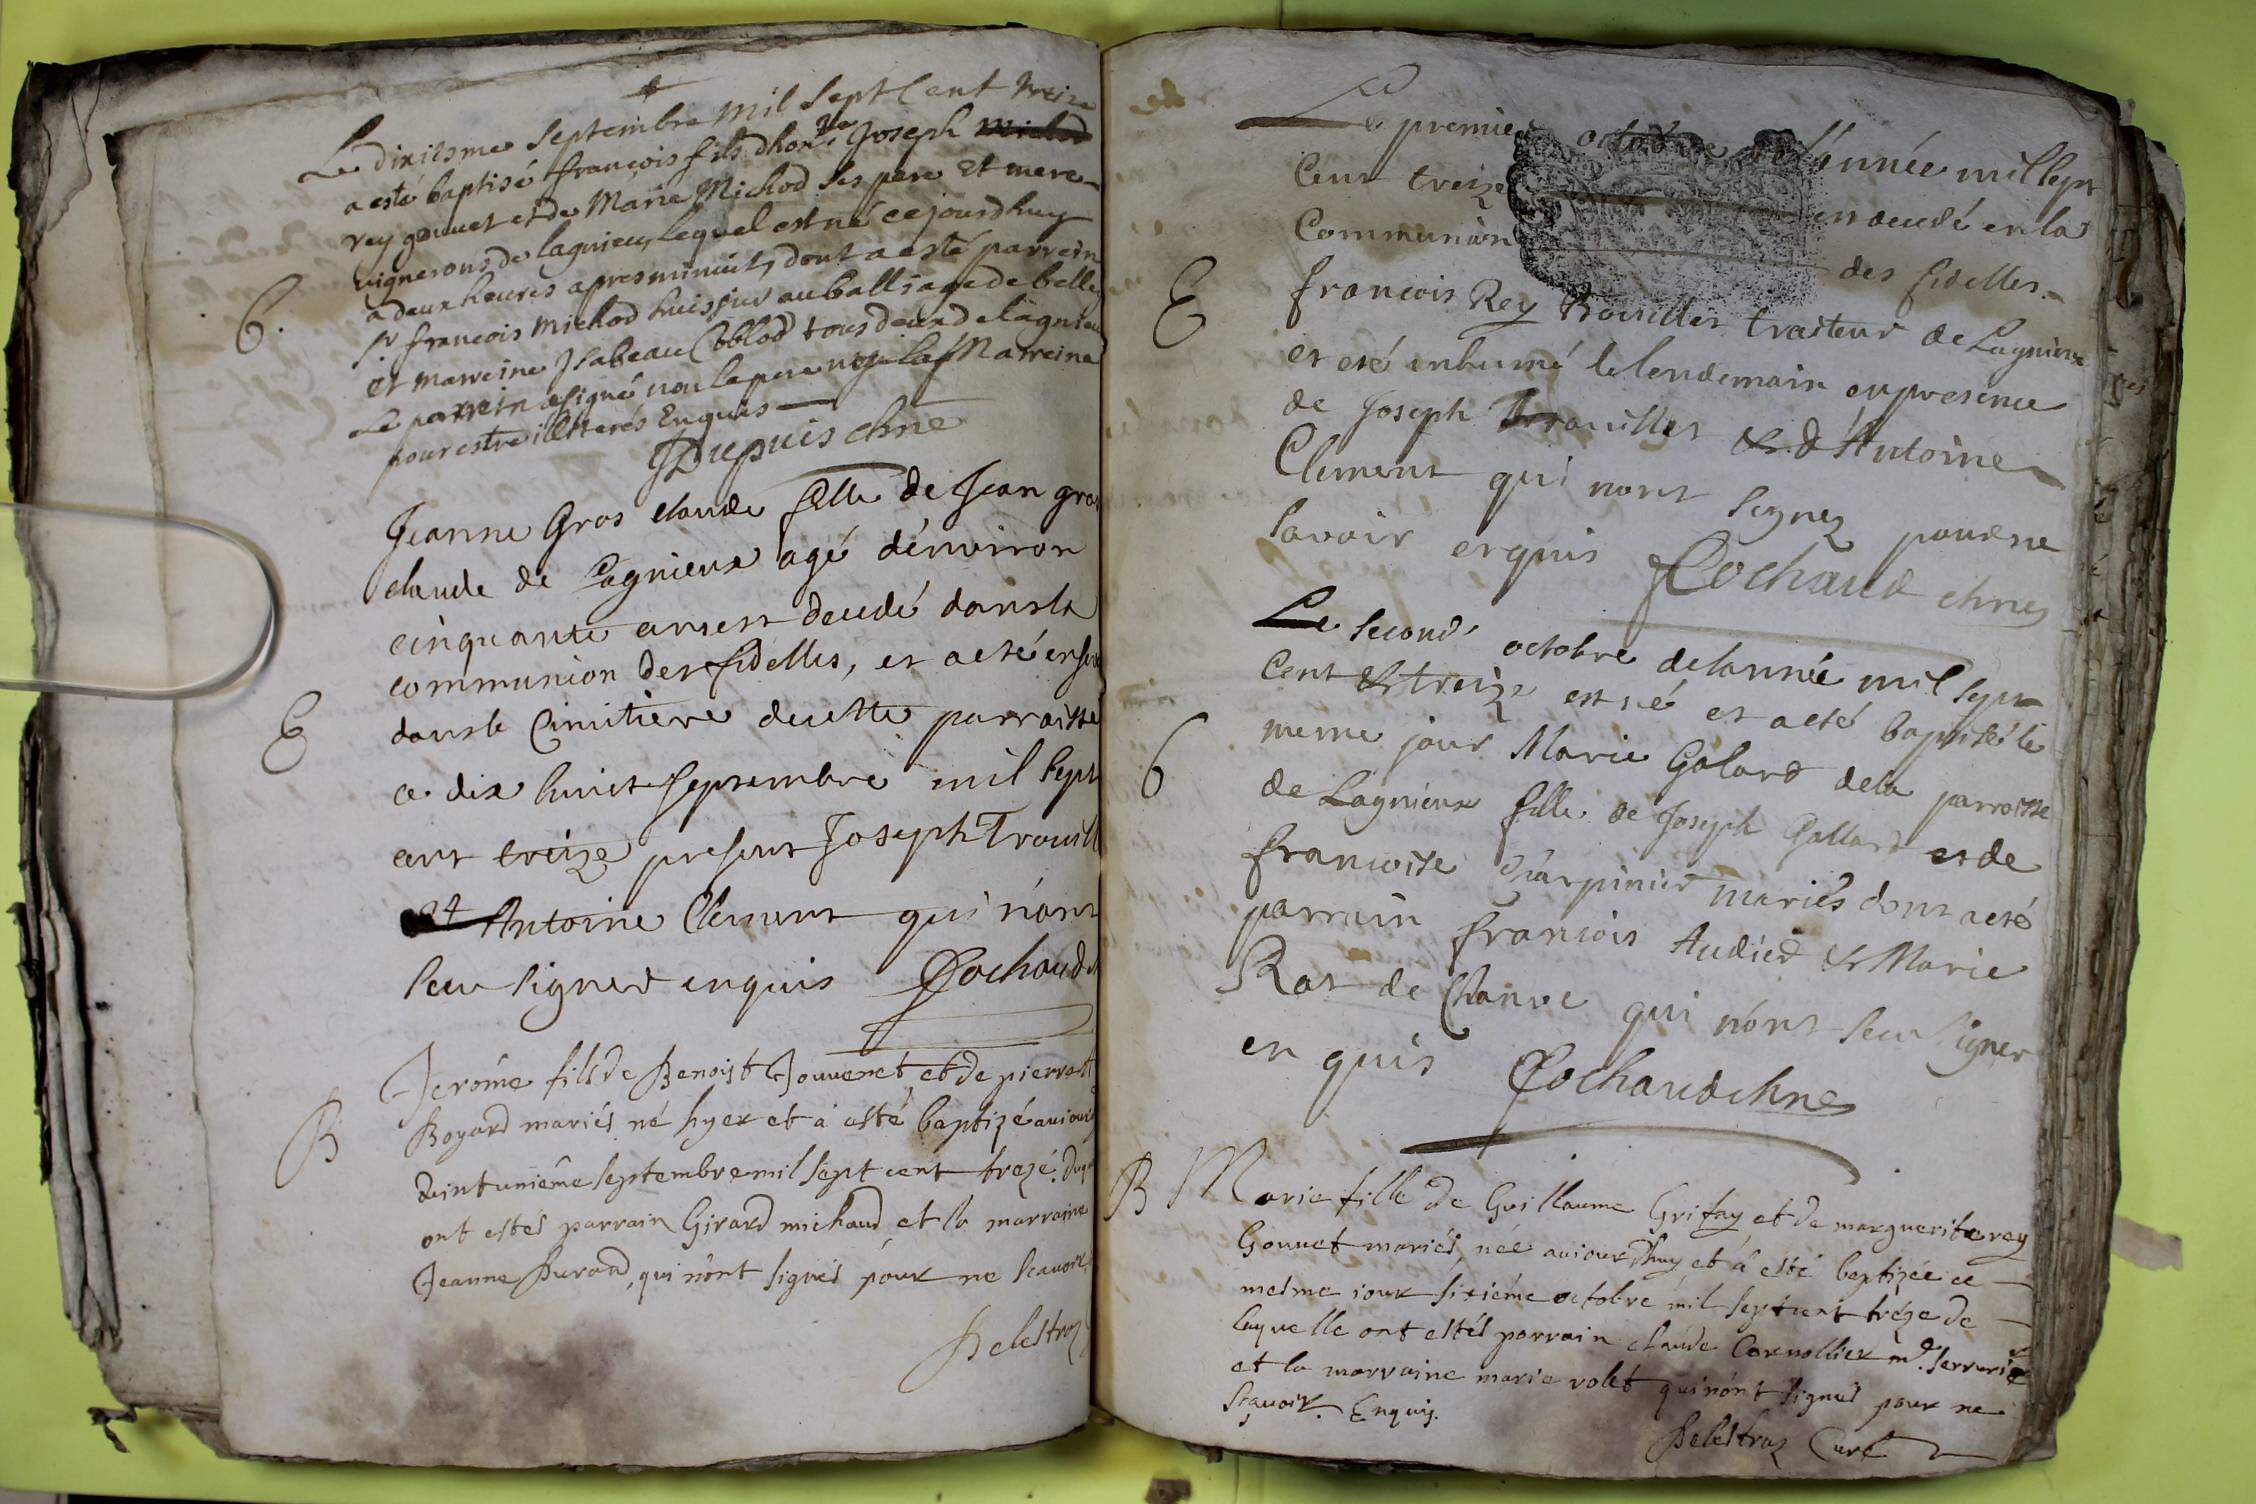 Le dixiesme Septembre mil Sept Cent treize
a esté baptisé françois fils d'hon.ble Joseph
rey gonnet et de Marie Michod ses pere Et mere
vignerons de lagnieu, lequel est né cejourdhuy
a deux heures apres minuit, dont a esté parrein
Sr françois Michod huissier au balliage de belley
et marreine Isabeau tous deux de lagnieu
Le parrein a signé non le pere ny la Marreine
pour estre illitterés Enquis
JDupuis chne
6.
Jeanne Gros claude fille de Jean gros
claude de Lagnieux agé dénviron
cinquante ans est decedé dans la
communion des fidelles, et a eté
dans le Cimitiere de cette parroisse
E
ce dix huit septembre mil sept
cent treize present Joseph
et Antoine Clement qui n'ont
sceu signer enquis Cochaud
Jerome fils de Benoist Jouvenet et de
B
Boyard mariés né hyer et a esté baptizé
vintuniême septembre mil sept cent treze.
ont estés parrain Girard michaud et la marraine
Jeanne Durand, qui n'ont signés pour ne scavoir
Delestraz
Le premier octobre de l'année mil sept
Cent treize decedé en la
Communion des fidelles
E
françois Rey traiteur de Lagnieux
et eté inhumé le lendemain en presence
de Joseph et d'Antoine
Clement qui n'ont signez pour ne
savoir enquis Cochaud chne
Le second octobre de l'année mil sept
Cent et treize est né et a eté baptisé le
meme jour Marie Galard de la parroisse
6
de Lagnieux fille de Joseph Gallard et de
francoise Charpinier mariés dont a eté
parrain francois Audier et Marie
Rat de Chanve qui n'ont sceu signer
en quis Cochaud chne
B
Marie fille de Guillaume Grifay et de marguerite rey
Gonnet mariés, née aujourdhuy et a esté baptizée ce
mesme iour sixiéme octobre mil sept cent tréze de
laquelle ont estés parrain claude Cornollier md. serrurier
et la marraine marie volet qui n'ont signés pour ne
sçavoir. Enquis.
Delestraz Curé